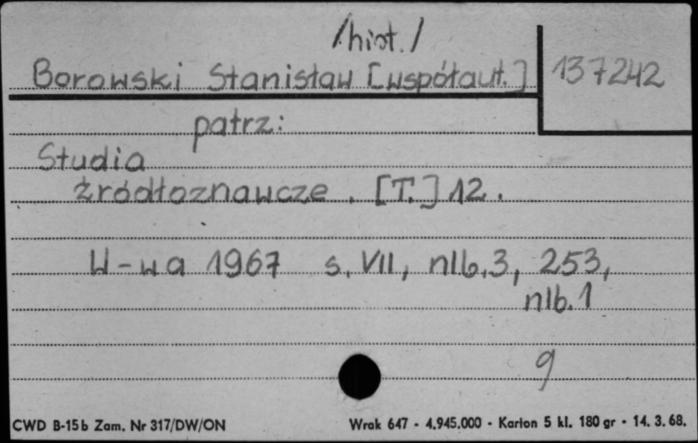 /hist./
Borowski Stanisław [współaut.] 137242
patrz:
Studia
źródłoznawcze. [T.] 12.
W-wa 1967 s. VII, nlb. 3, 253,
nlb. 1
9
CWD B-15b Zam. Nr 317/DW/ON Wrak 647 - 4.945.000 - Karton 5 kl. 180 gr - 14. 3. 68.